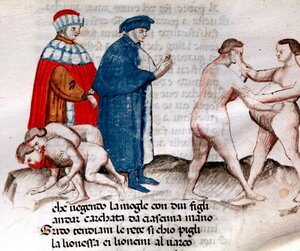 che uegento la mogle con dui figli
andar carchata da ciascuna mano
Grido tendiam le rete si chio pigli
la lionessa ei lioncini al uarco